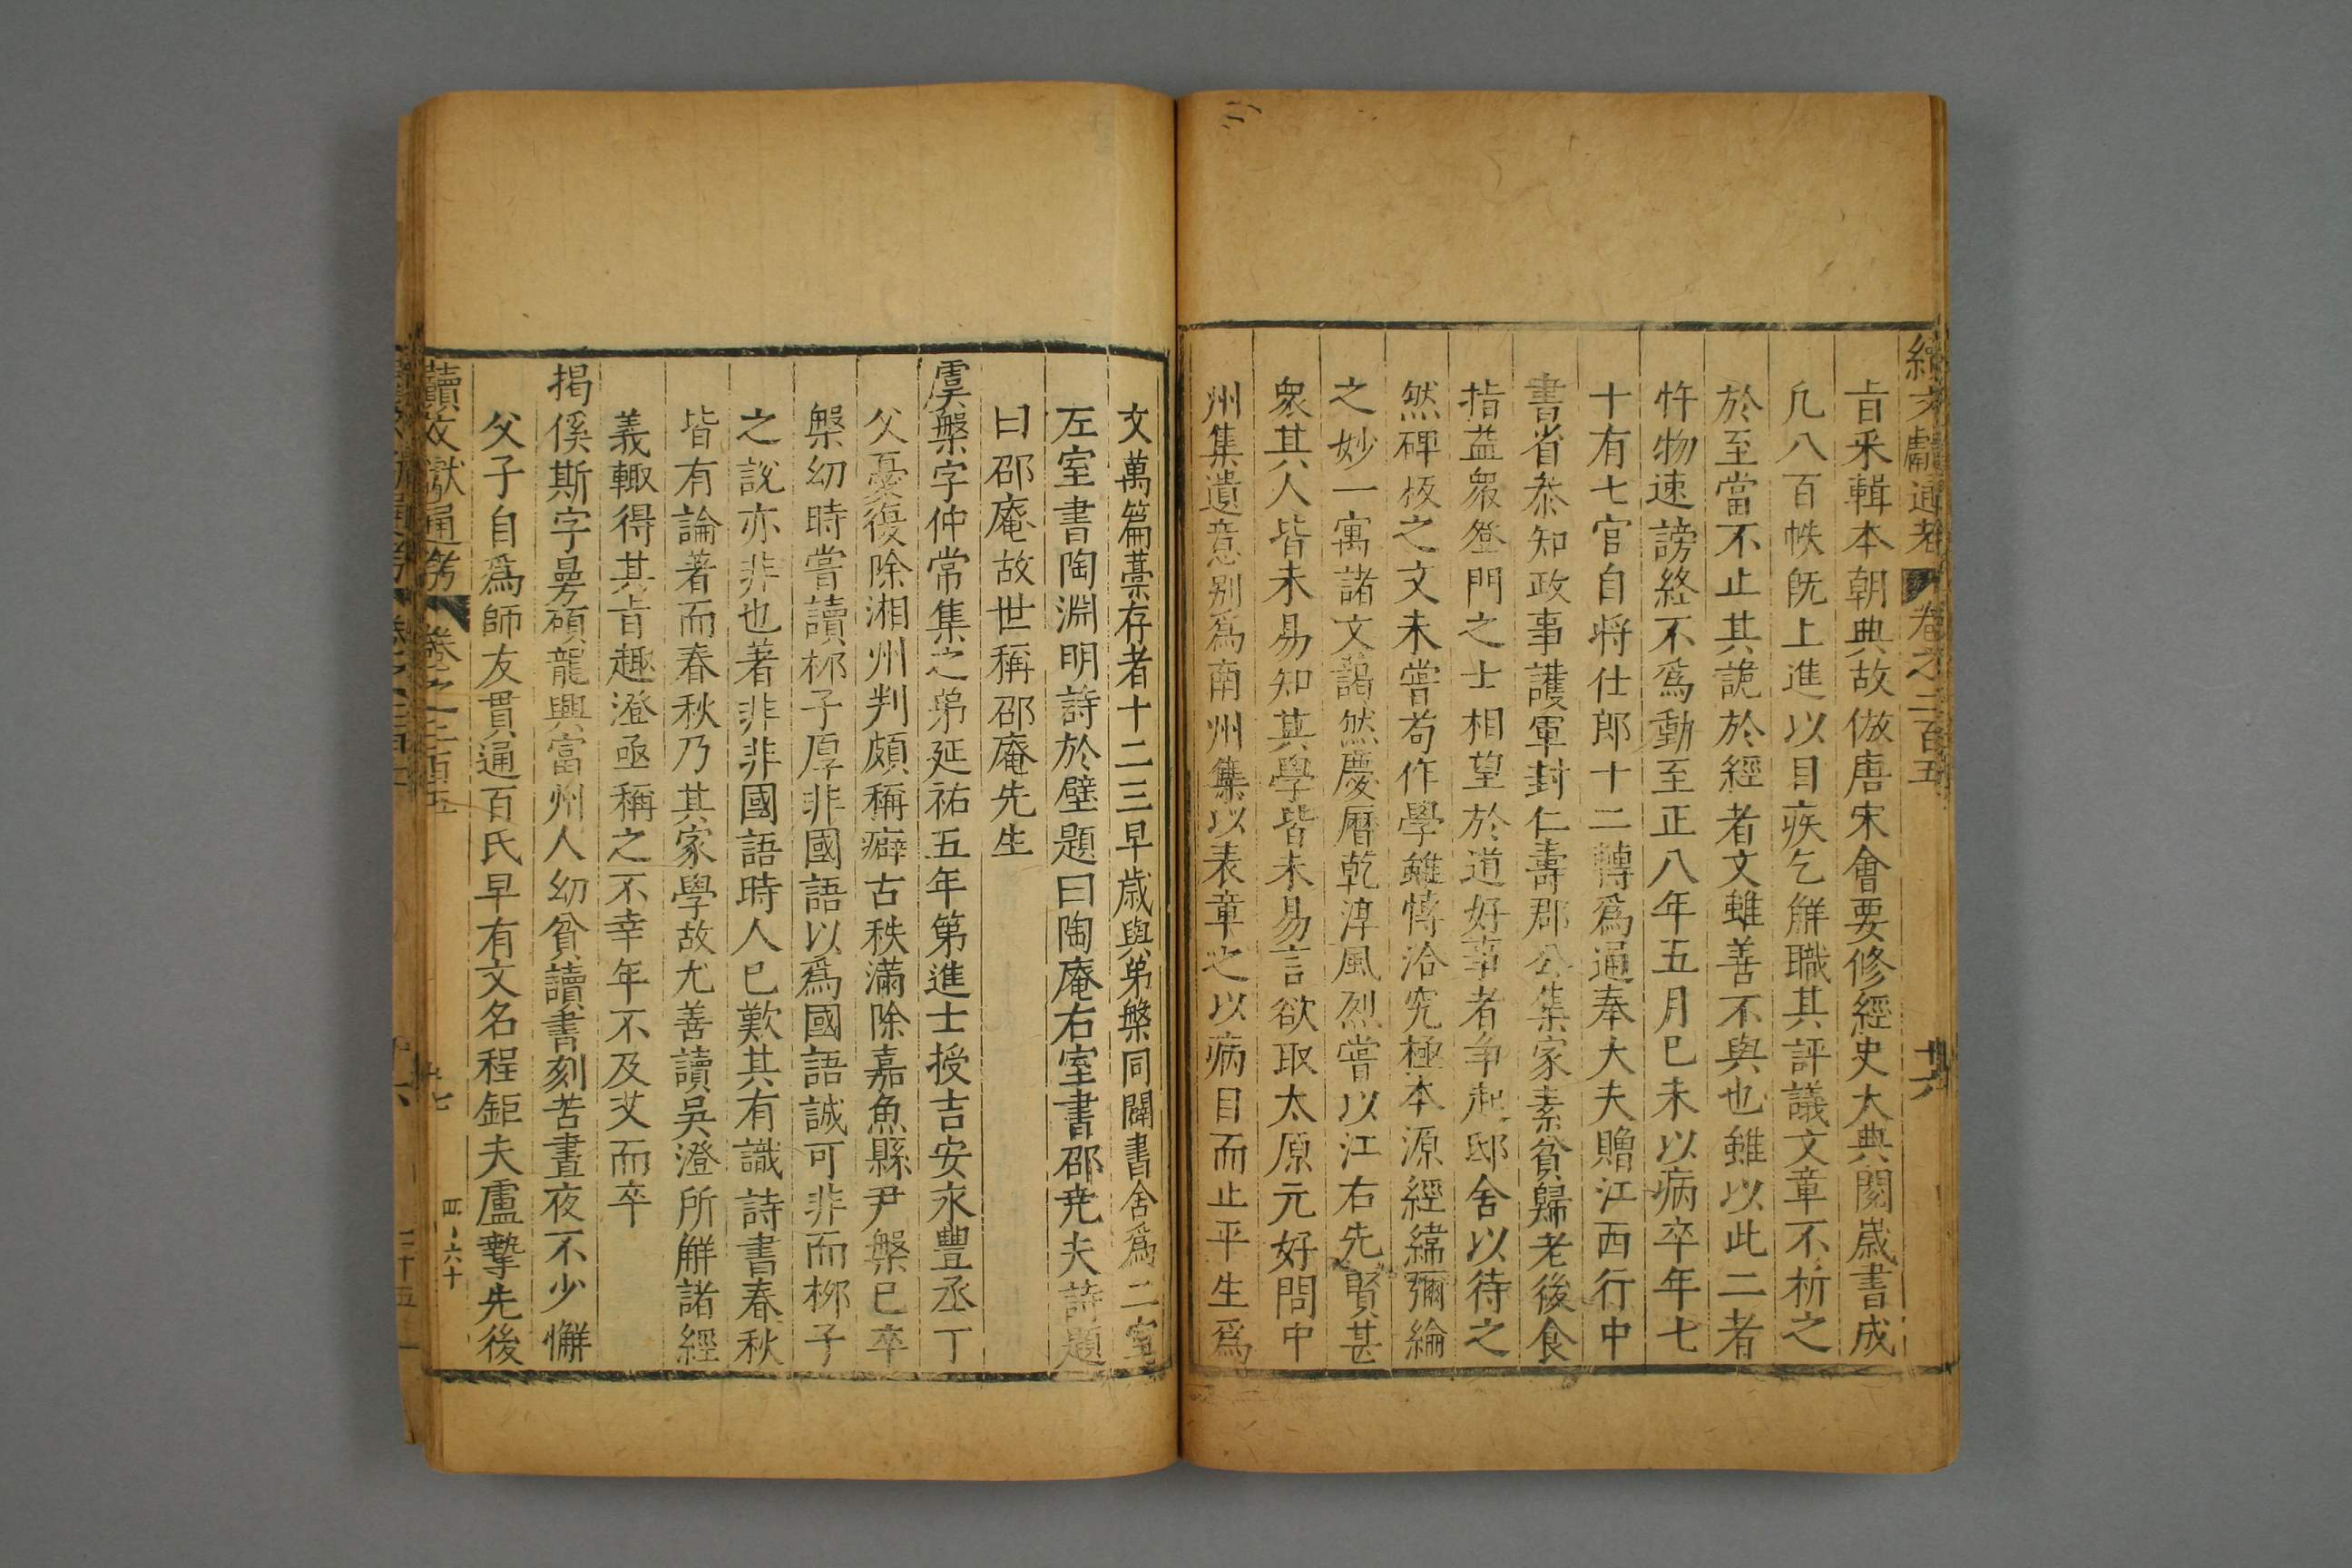 續文獻通考 卷之二百五 十六
旨采輯本朝典故倣唐宋會要修經史大典閱歲書成
凡八百帙既上進以目疾乞觧職其評議文章不折之
於至當不止其詭於經者文雖善不與也雖以此二者
忤物速謗終不爲動至正八年五月巳未以病卒年七
十有七官自将仕郎十二轉爲通奉大夫贈江西行中
書省叅知政事護軍封仁壽郡公集家素貧歸老後食
指益衆登門之士相望於道好事者争起邸舍以待之
然碑板之文未嘗苟作學雖博洽究極本源經緯彌綸
之妙一寓諸文藹然慶曆乾淳風烈嘗以江右先賢甚
衆其人皆未易知其學皆未易言欲取太原元好問中
州集遺意别爲南州集以表章之以病目而止平生爲
文萬篇藁存者十二三早歲與弟槃同闢書舍爲二室
左室書陶淵明詩於壁題曰陶庵右室書邵尭夫詩題
曰邵庵故世稱邵庵先生
虞槃字仲常集之弟延祐五年第進士授吉安永豐丞丁
父憂復除湘州判頗稱癖古秩滿除嘉魚縣尹槃巳卒
槃幼時嘗讀柳子厚非國語以爲國語誠可非而柳子
之說亦非也著非非國語時人巳歎其有識詩書春秋
皆有論著而春秋乃其家學故尤善讀吳澄所觧諸經
義輙得其旨趣澄亟稱之不幸年不及艾而卒
揭傒斯字曼碩龍興富州人幼貧讀書刻苦晝夜不少懈
父子自爲師友貫通百氏早有文名程鉅夫盧摯先後
續文獻通考 卷之二百五 十七 四六十